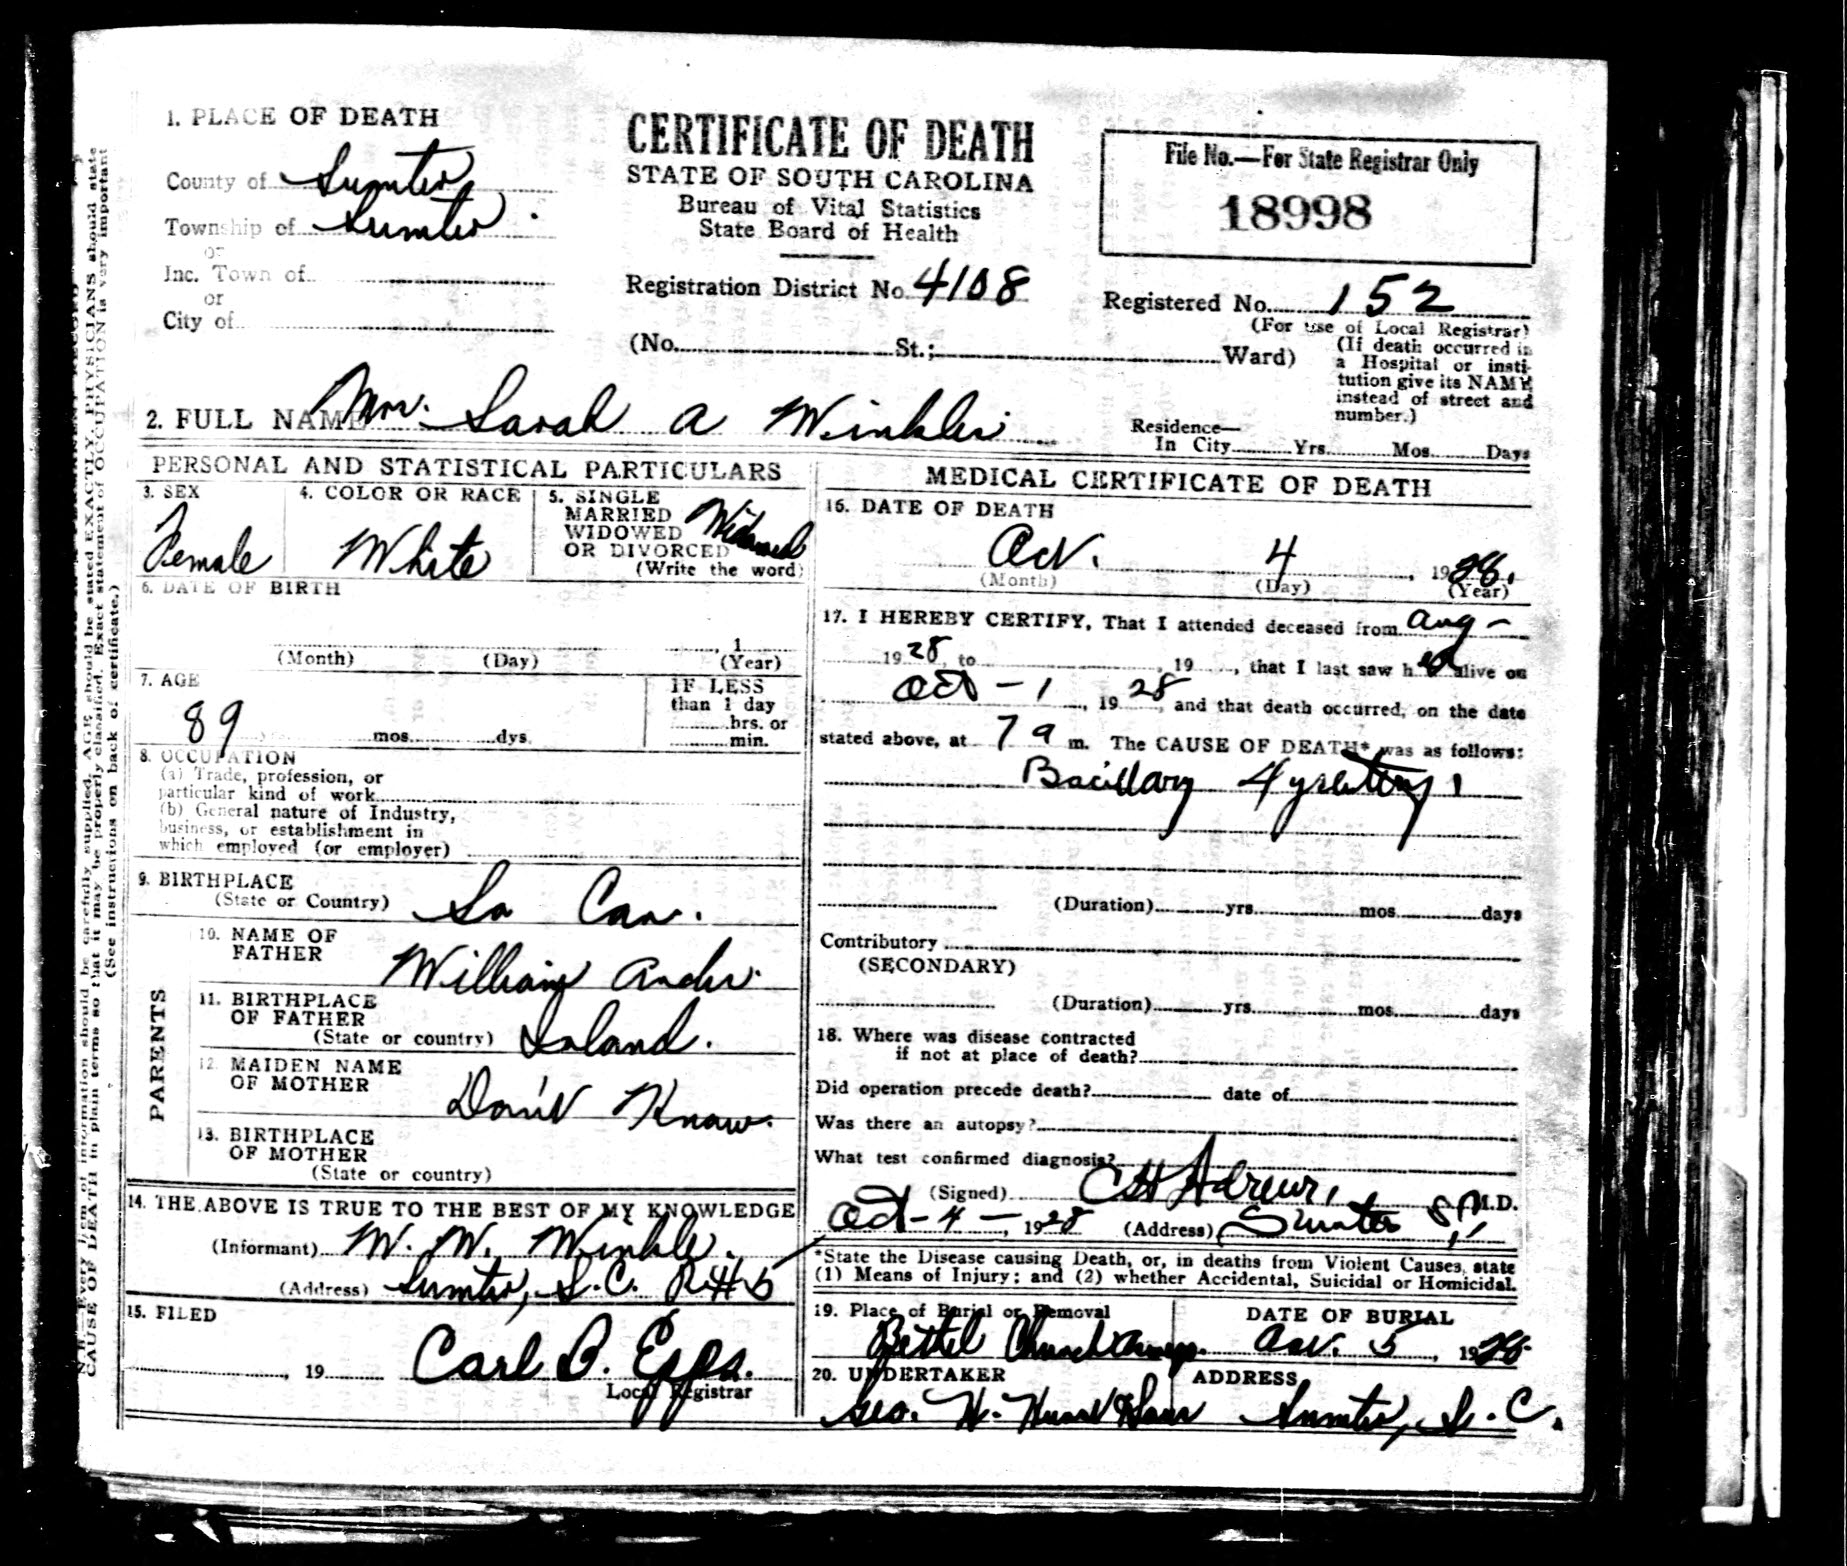 1. PLACE OF DEATH
County of Sumter
Township of Sumter.
or
Inc. Town of
or
City of
CERTIFICATE OF DEATH
STATE OF SOUTH CAROLINA
Bureau of Vital Statistics
State Board of Health
File No.—For State Registrar Only
18998
Registration District No. 4108
Registered No. 152
(For use of Local Registrar)
(No. St.; Ward)
(If death occurred in
a Hospital or insti-
tution give its NAME
instead of street and
number.)
2. FULL NAME Mrs. Sarah A Winkler
Residence—
In City Yrs. Mos. Days
PERSONAL AND STATISTICAL PARTICULARS
3. SEX
Female
4. COLOR OR RACE
White
5. SINGLE
MARRIED
WIDOWED
OR DIVORCED
Widowed
(Write the word)
6. DATE OF BIRTH
, 1
(Month) (Day) (Year)
7. AGE
89 mos. dys.
IF LESS
than 1 day
hrs. or
min.
8. OCCUPATION
(a) Trade, profession, or
particular kind of work
(b) General nature of Industry,
business, or establishment in
which employed (or employer)
9. BIRTHPLACE
(State or Country) So Car.
PARENTS
10. NAME OF
FATHER
William
11. BIRTHPLACE
OF FATHER
(State or country)
12. MAIDEN NAME
OF MOTHER
Don't Know.
13. BIRTHPLACE
OF MOTHER
(State or country)
14. THE ABOVE IS TRUE TO THE BEST OF MY KNOWLEDGE
(Informant) W. W. Winkle.
(Address) Sumter, S.C. R#5
15. FILED
, 19 Carl B. Epps.
Local Registrar
MEDICAL CERTIFICATE OF DEATH
16. DATE OF DEATH
Oct. 4, 1928.
(Month) (Day) (Year)
17. I HEREBY CERTIFY, That I attended deceased from Aug -
1928, to , 19 , that I last saw her alive on
Oct - 1, 1928, and that death occurred, on the date
stated above, at 7 a m. The CAUSE OF DEATH* was as follows:
Bacillary dysentery
(Duration) yrs. mos. days
Contributory
(SECONDARY)
(Duration) yrs. mos. days
18. Where was disease contracted
if not at place of death?
Did operation precede death? date of
Was there an autopsy?
What test confirmed diagnosis?
(Signed) M.D.
Oct - 4 -, 1928 (Address) Sumter S.C.
*State the Disease causing Death, or, in deaths from Violent Causes, state
(1) Means of Injury; and (2) whether Accidental, Suicidal or Homicidal.
19. Place of Burial or Removal
Bethel Church
DATE OF BURIAL
Oct. 5, 1928
20. UNDERTAKER
Geo. H. Hurst & Sons
ADDRESS
Sumter, S. C.
CAUSE OF DEATH in plain terms so that it may be properly classified. Exact statement of OCCUPATION is very important
(See instructions on back of certificate.)